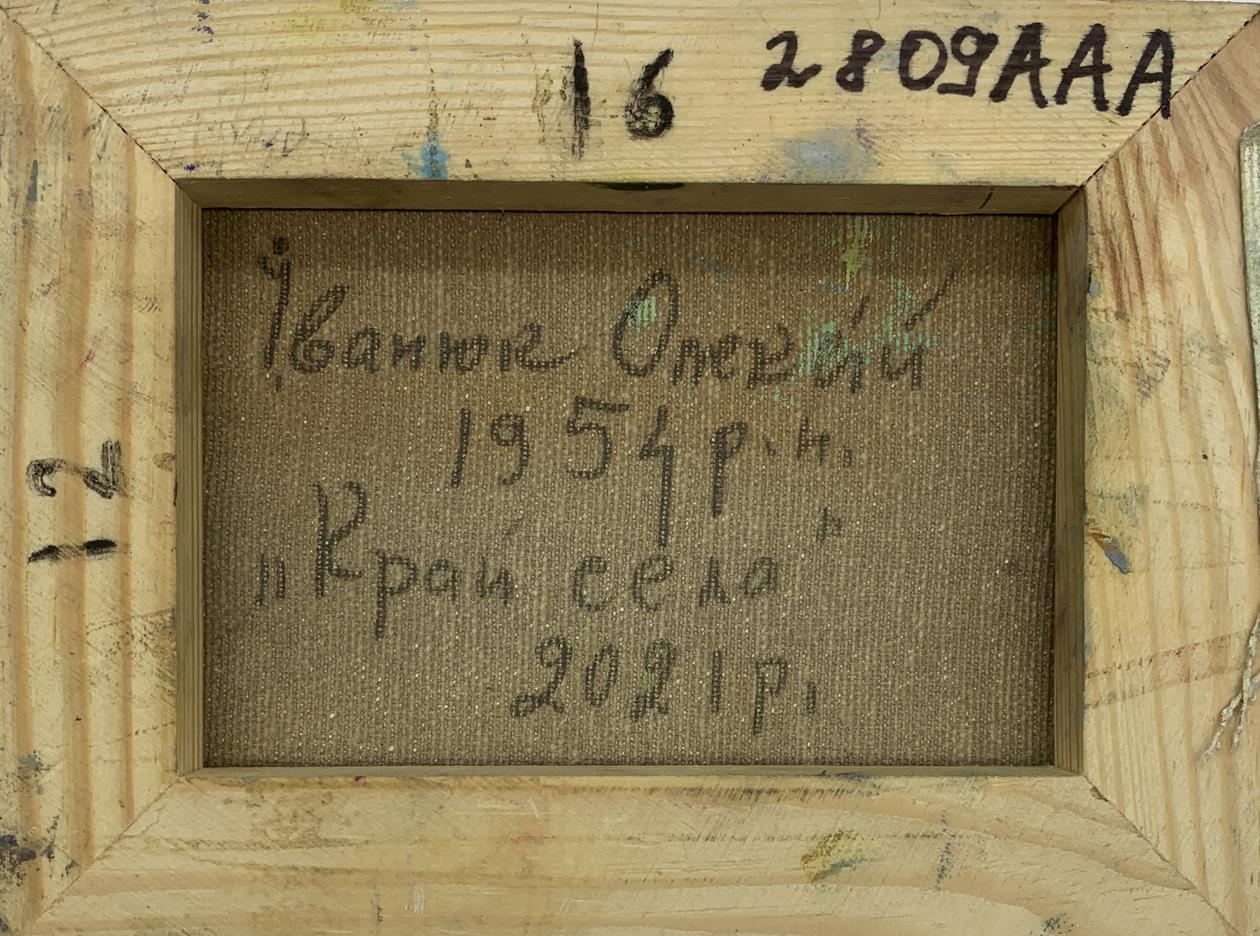 16
2809AAA
12
Іванюк Олексій
1954 р.н.
„Край села"
2021 р.